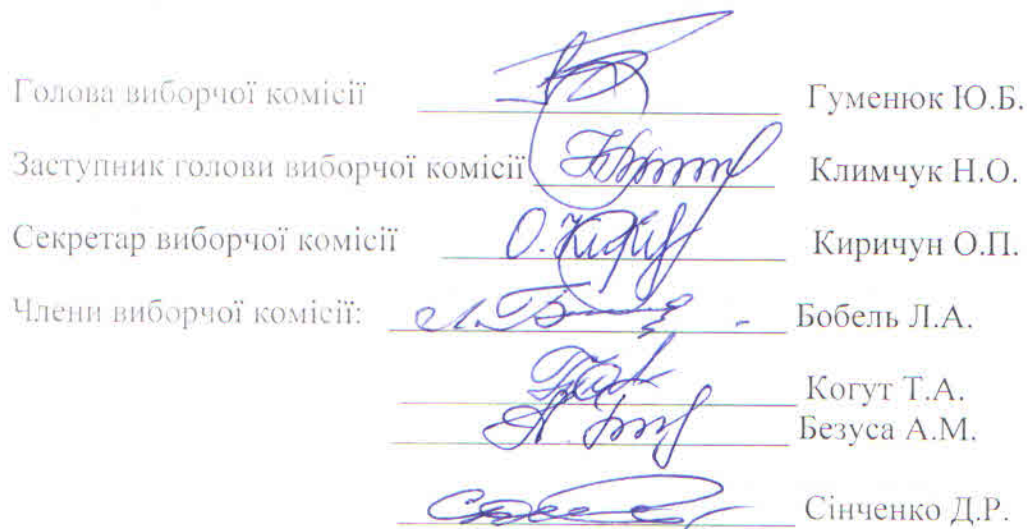 Голова виборчої комісії Гуменюк Ю.Б.
Заступник голови виборчої комісії Климчук Н.О.
Секретар виборчої комісії Киричун О.П.
Члени виборчої комісії: Бобель Л.А.
Когут Т.А.
Безуса А.М.
Сінченко Д.Р.